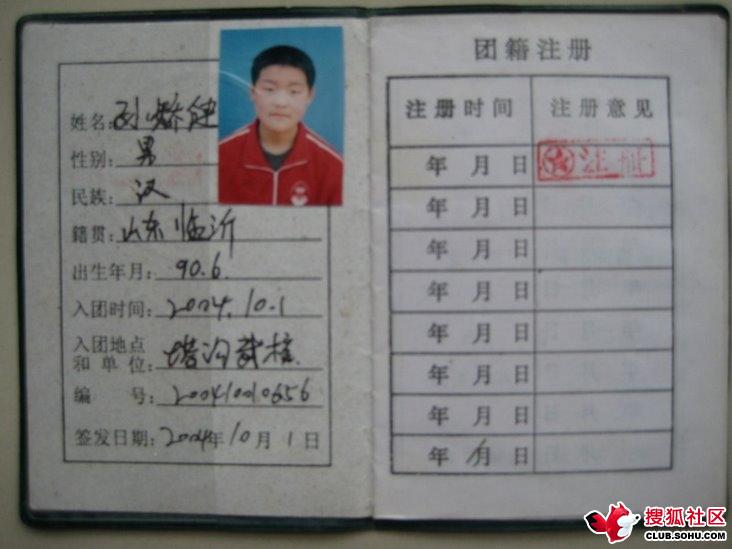 姓名：孙娇健
性别：男
民族：汉
籍贯：山东临沂
出生年月：90.6.
入团时间：2004.10.1
入团地点
和单位：塔沟武校
编 号：20041010656
签发日期：2004年10月1日
团籍注册
注册时间 注册意见
年 月 日 注册
年 月 日
年 月 日
年 月 日
年 月 日
年 月 日
年 月 日
年 月 日
搜狐社区
CLUB.SOHU.COM